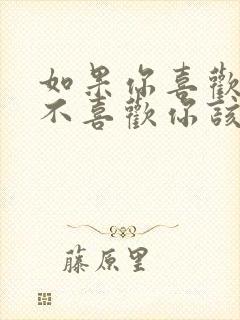 如果你喜歡
不喜歡你該
藤原里